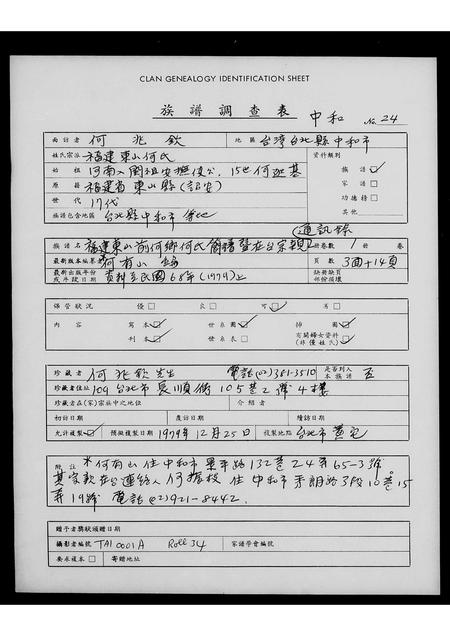 CLAN GENEALOGY IDENTIFICATION SHEET
族譜調查表 中和 No. 24
面訪者 何兆欽 地區 台灣台北縣中和市
姓氏宗派 福建東山何氏 資料類別
始祖 河南入閩祖安撫使公, 15世何逛基 族譜 ✓
原籍 福建省東山縣(詔安) 家譜
世代 17代 功德榜
族譜包含地區 台北縣中和市 其他
通訊錄
族譜名 福建東山前何鄉何氏 暨在台宗親 卷數 1 册
最新版本編纂者 何有山 編 頁數 3面+14頁
最新出版年份或手段日期 資料至民國68年(1979)止 缺冊缺頁部份損壞
保管狀況 優 良 可 ✓ 劣
內容 寫本 ✓ 世系圖 ✓ 插圖
刊本 世系表 有關婦女資料(非僅姓氏)
珍藏者 何兆欽先生 電話(02)381-3510 是否列入本族譜 否
珍藏者住址 109台北市長順街105巷2號4樓
珍藏者在(家)宗族中之地位 介紹者
初訪日期 度訪日期 續訪日期
允許複製 ✓ 預擬複製日期 1979年12月25日 複製地點 台北市黃宅
附註 *何有山住中和市景平路132巷24弄65-3號。
其宗款在台連絡人何振枝 住中和市 朗路3段10巷15
弄19號 電話(02)921-8442.
贈予者獎狀頒贈日期
攝影者編號 TAI 0001A Roll 34 家譜學會編號
要求複本 寄贈地址